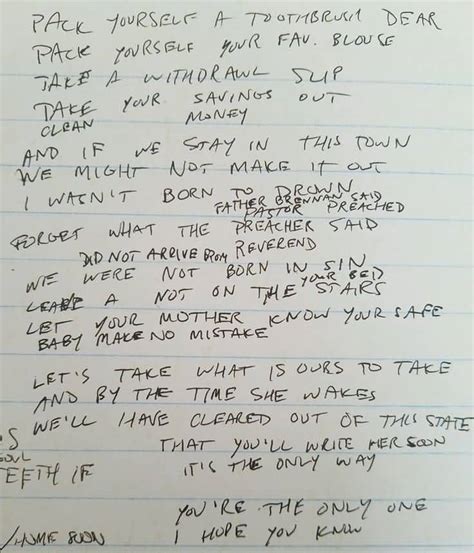 PACK YOURSELF A TOOTHBRUSH DEAR
PACK YOURSELF YOUR FAV. BLOUSE
TAKE A WITHDRAWL SLIP
TAKE YOUR SAVINGS OUT
CLEAN MONEY
AND IF WE STAY IN THIS TOWN
WE MIGHT NOT MAKE IT OUT
I WASN'T BORN TO DROWN
FATHER BRENNAN SAID
PASTOR PREACHED
FORGET WHAT THE PREACHER SAID
DID NOT ARRIVE FROM REVEREND
WE WERE NOT BORN IN SIN
YOUR BED
LEAVE A NOT ON THE STAIRS
LET YOUR MOTHER KNOW YOUR SAFE
BABY MAKE NO MISTAKE
LET'S TAKE WHAT IS OURS TO TAKE
AND BY THE TIME SHE WAKES
WE'LL HAVE CLEARED OUT OF THIS STATE
THAT YOU'LL WRITE HER SOON
SOUL
TEETH IF
IT'S THE ONLY WAY
YOU'RE THE ONLY ONE
I HOPE YOU KNOW
SOON